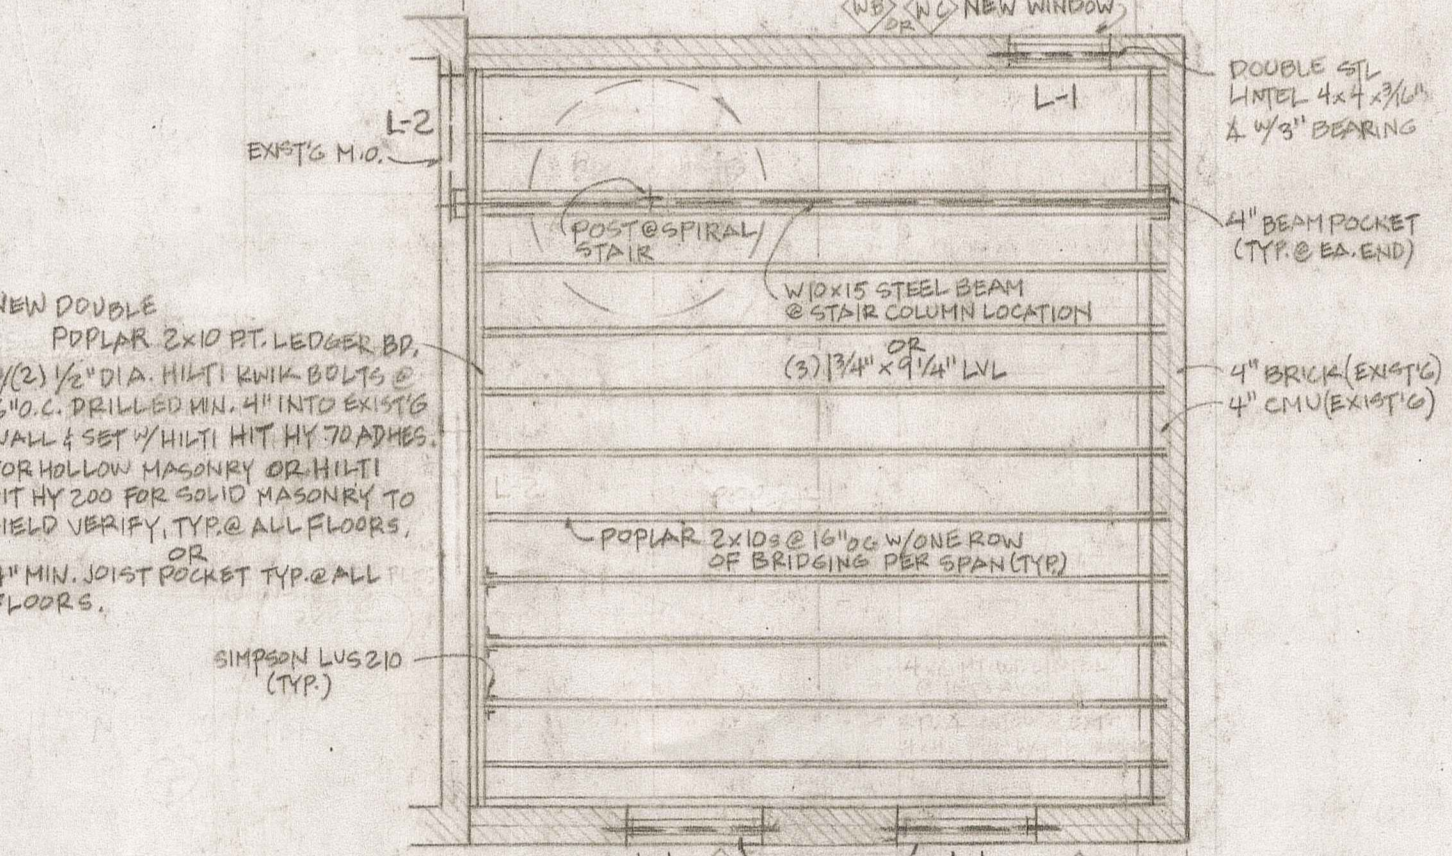 WB OR WC NEW WINDOW
DOUBLE STL
LINTEL 4x4x3/16"
& W/3" BEARING
L-1
L-2
EXIST'G M.O.
POST@SPIRAL
STAIR
4" BEAM POCKET
(TYP.@ EA. END)
W10x15 STEEL BEAM
@ STAIR COLUMN LOCATION
OR
(3) 1 3/4" x 9 1/4" LVL
NEW DOUBLE
POPLAR 2x10 P.T. LEDGER BD.
/(2) 1/2" DIA. HILTI KWIK BOLTS @
6"O.C. DRILLED MIN. 4" INTO EXIST'G
WALL & SET W/HILTI HIT HY 70 ADHES.
FOR HOLLOW MASONRY OR HILTI
HIT HY 200 FOR SOLID MASONRY TO
FIELD VERIFY, TYP.@ ALL FLOORS.
OR
4" MIN. JOIST POCKET TYP.@ALL
FLOORS.
4" BRICK (EXIST'G)
4" CMU (EXIST'G)
POPLAR 2x10s @ 16"OC W/ONE ROW
OF BRIDGING PER SPAN (TYP.)
SIMPSON LUS210
(TYP.)